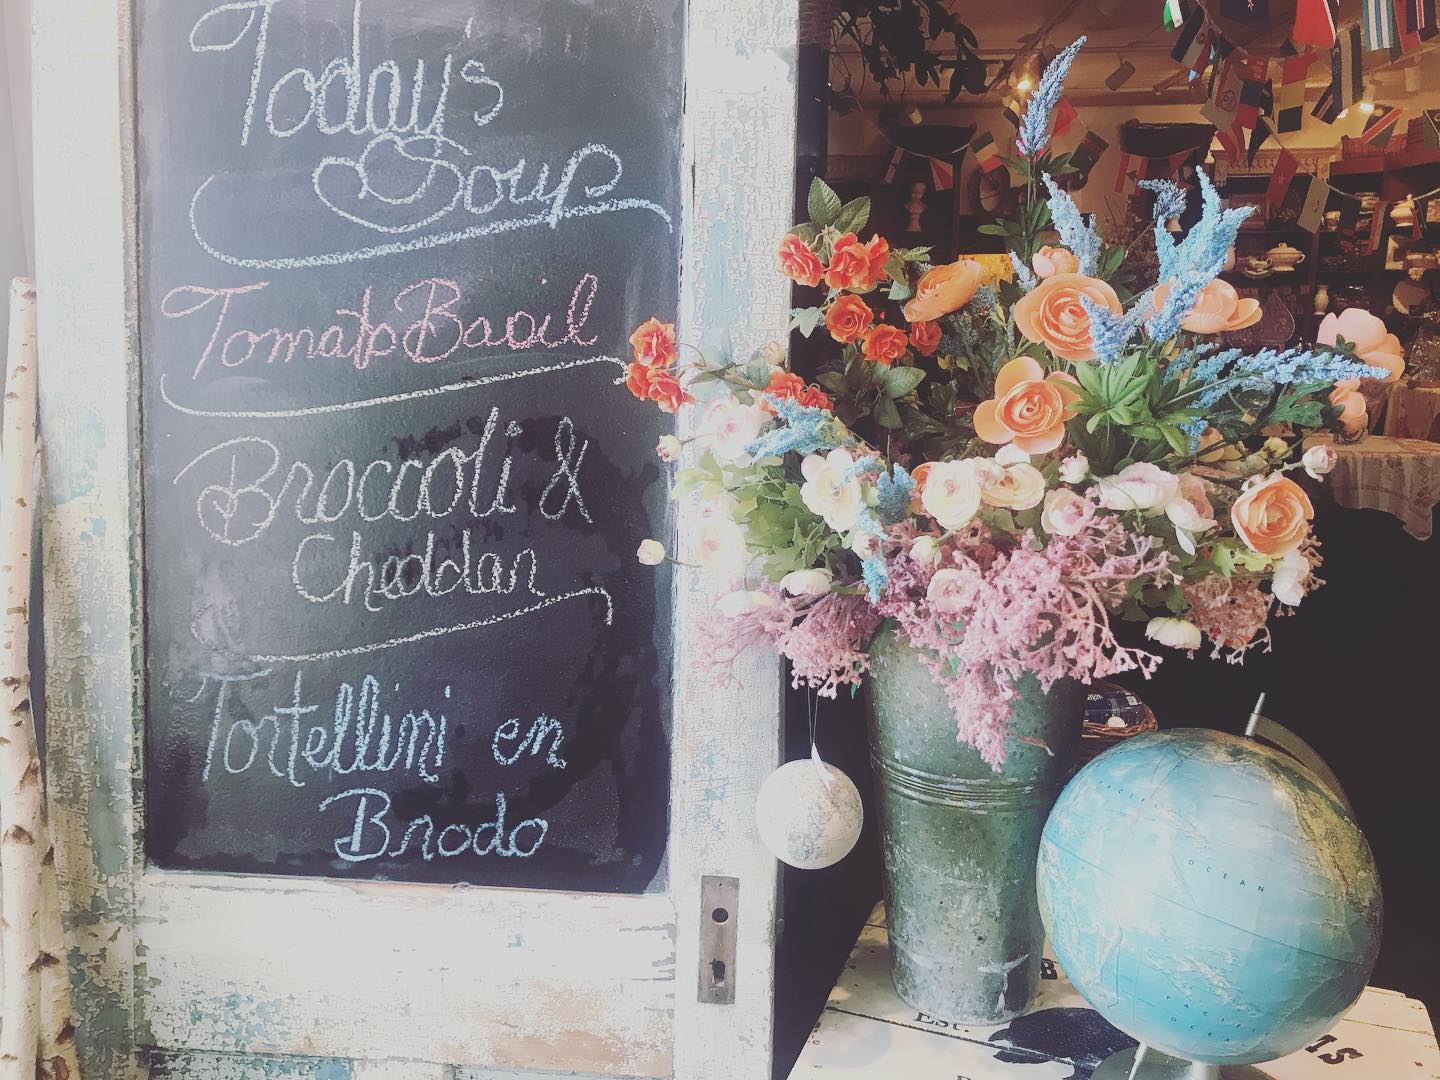 Today's
Soup
Tomato Basil
Broccoli &
Cheddar
Tortellini en
Brodo
OCEAN
PACIFIC
OCEAN
Est.